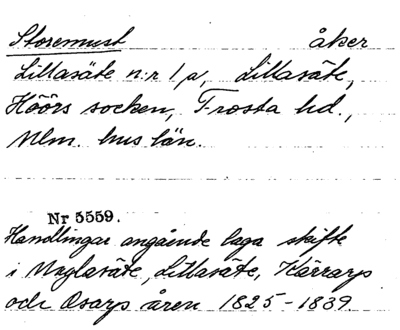 Storemust åker
Lillasäte n:r 1 a, Lillasäte,
Höörs socken, Frosta hd.,
Mlm. hus län.
Nr 5559.
Handlingar angående laga skifte
i Maglasäte, Lillasäte, Kärrarp
och Osarp åren 1825-1839